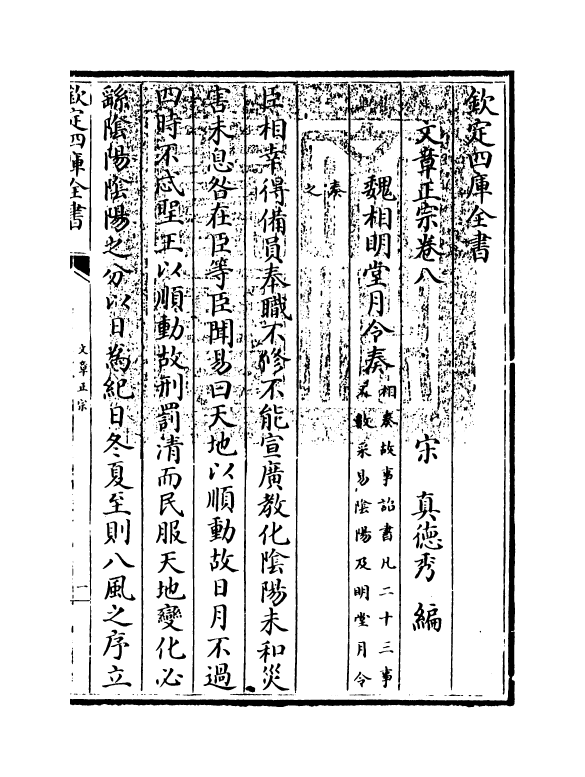 欽定四庫全書
文章正宗卷八
宋 真德秀 編
魏相明堂月令奏 相奏故事詔書凡二十三事
又數采易陰陽及明堂月令
奏
之
臣相幸得備員奉職不修不能宣廣教化陰陽未和災
害未息咎在臣等臣聞易曰天地以順動故日月不過
四時不忒聖王以順動故刑罰清而民服天地變化必
繇陰陽陰陽之分以日為紀日冬夏至則八風之序立
欽定四庫全書
文章正宗
一